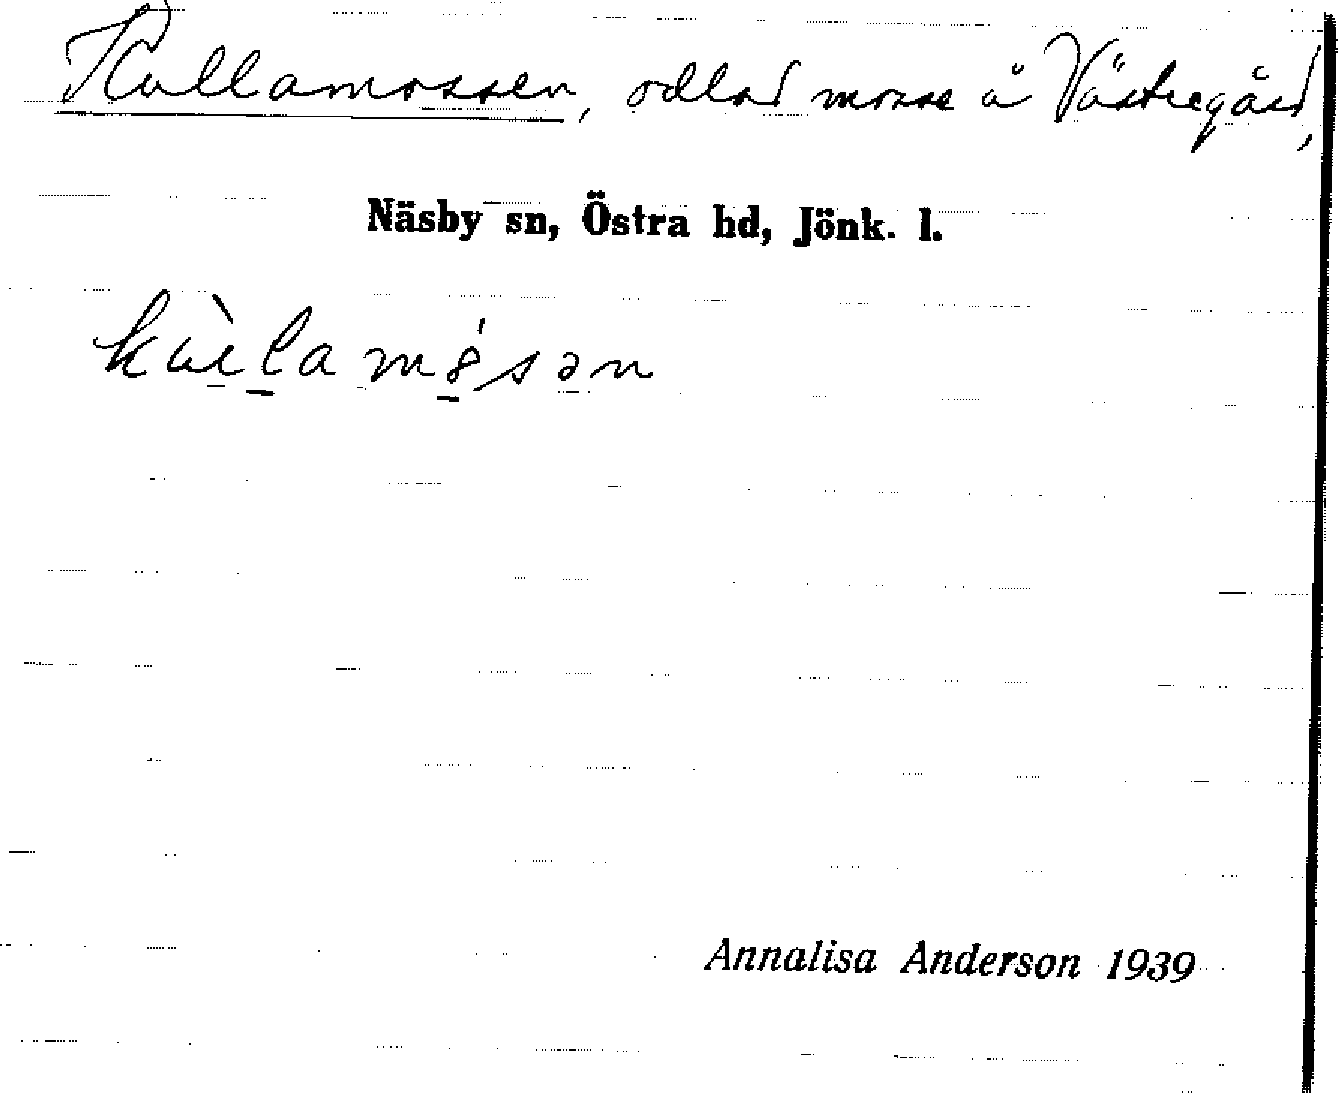 Kullamossen, odlad mosse å Västregård,
Näsby sn, Östra hd, Jönk. l.
Annalisa Anderson 1939